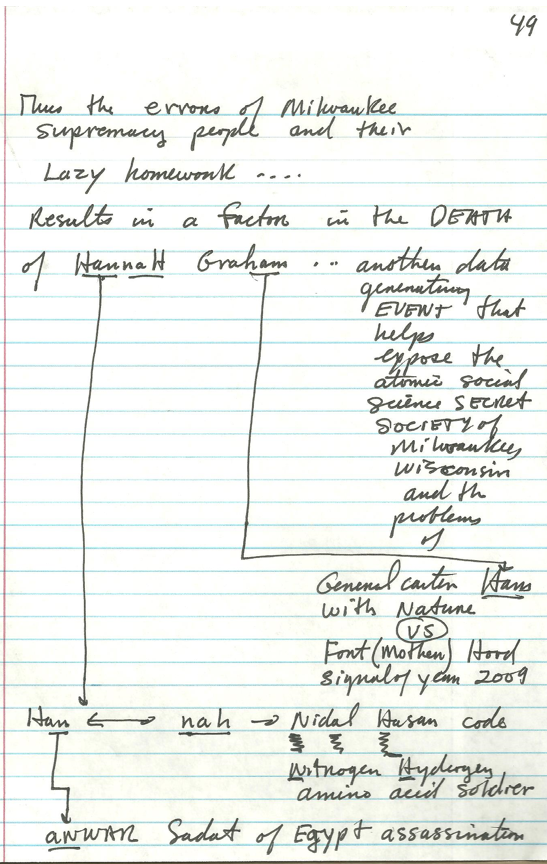 49
Thus the errors of Milwaukee
supremacy people and their
Lazy homework ....
Results in a factor in the DEATH
of HannaH Graham ... another data
generating
EVENT that
helps
expose the
atomic social
science SECRET
SOCIETY of
Milwaukee
Wisconsin
and th
problems
of
General carter Ham
with Nature
VS
Fort (Mother) Hood
signal of year 2009
Han ⟷ nah → Nidal Hasan code
Nitrogen Hydrogen
amino acid soldier
aNWAR Sadat of Egypt assassination